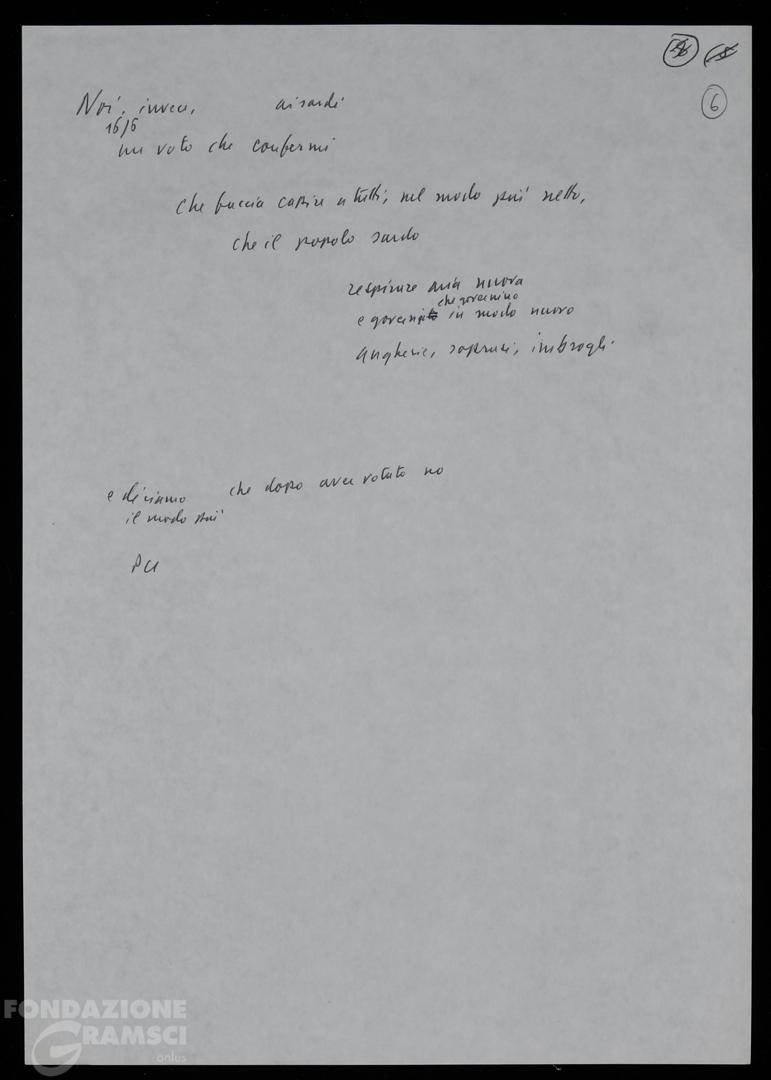 6
Noi, invece, ai sardi
16/6
un voto che confermi
che faccia capire a tutti, nel modo più netto,
che il popolo sardo
respirare aria nuova
che governino
e in modo nuovo
angherie, soprusi, imbrogli.
e diciamo che dopo aver votato no
il modo più
PCI
FONDAZIONE
GRAMSCI
onlus